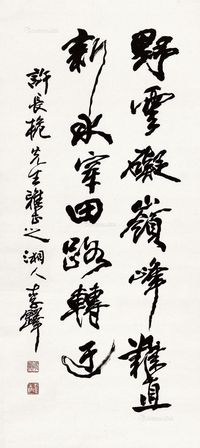 野雲礙嶺峰難直
新水穿田路轉迂
許長先生雅正之湘人李鐸